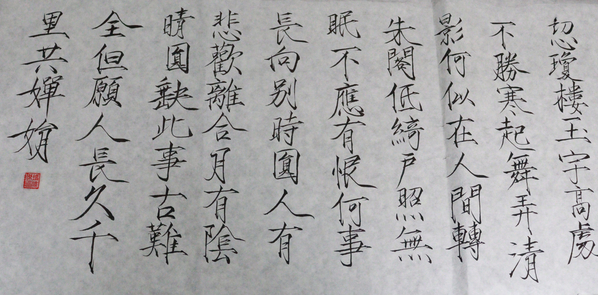 恐瓊樓玉宇高處
不勝寒起舞弄清
影何似在人間轉
朱閣低綺戶照無
眠不應有恨何事
長向別時圓人有
悲歡離合月有陰
晴圓缺此事古難
全但願人長久千
里共嬋娟